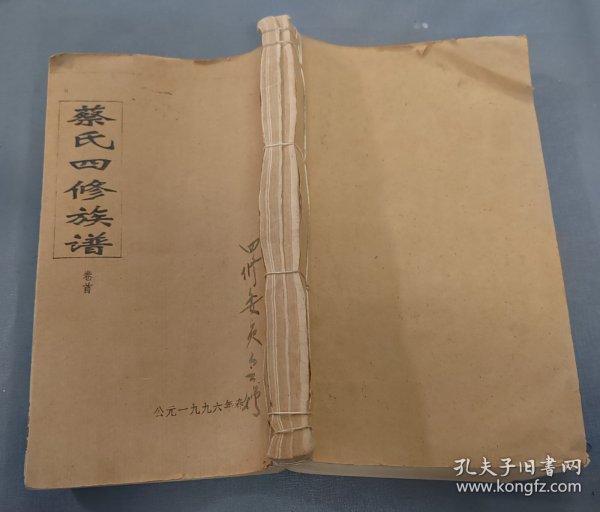 蔡氏四修族谱
卷首
四修委员会赠
公元一九九六年春
孔夫子旧书网
www.kongfz.com